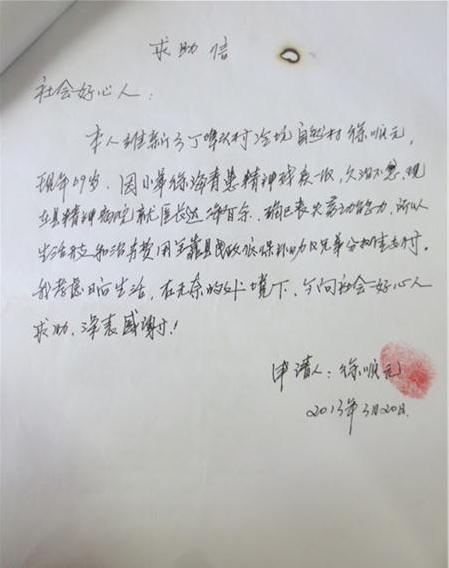 求助信
社会好心人：
本人维新乡丁 村冷坑自然村徐顺元，
现年69岁，因小弟徐海青患精神残疾一级，久治不愈，现
在县精神病院就医长达 年余，现已丧失劳动能力，所以
生活开支和治疗费用全靠县民政低保补助及兄弟分担维支付。
我考虑日后生活，在无奈的处境下，今向社会好心人
求助，深表感谢！
申请人：徐顺元
2013年3月20日